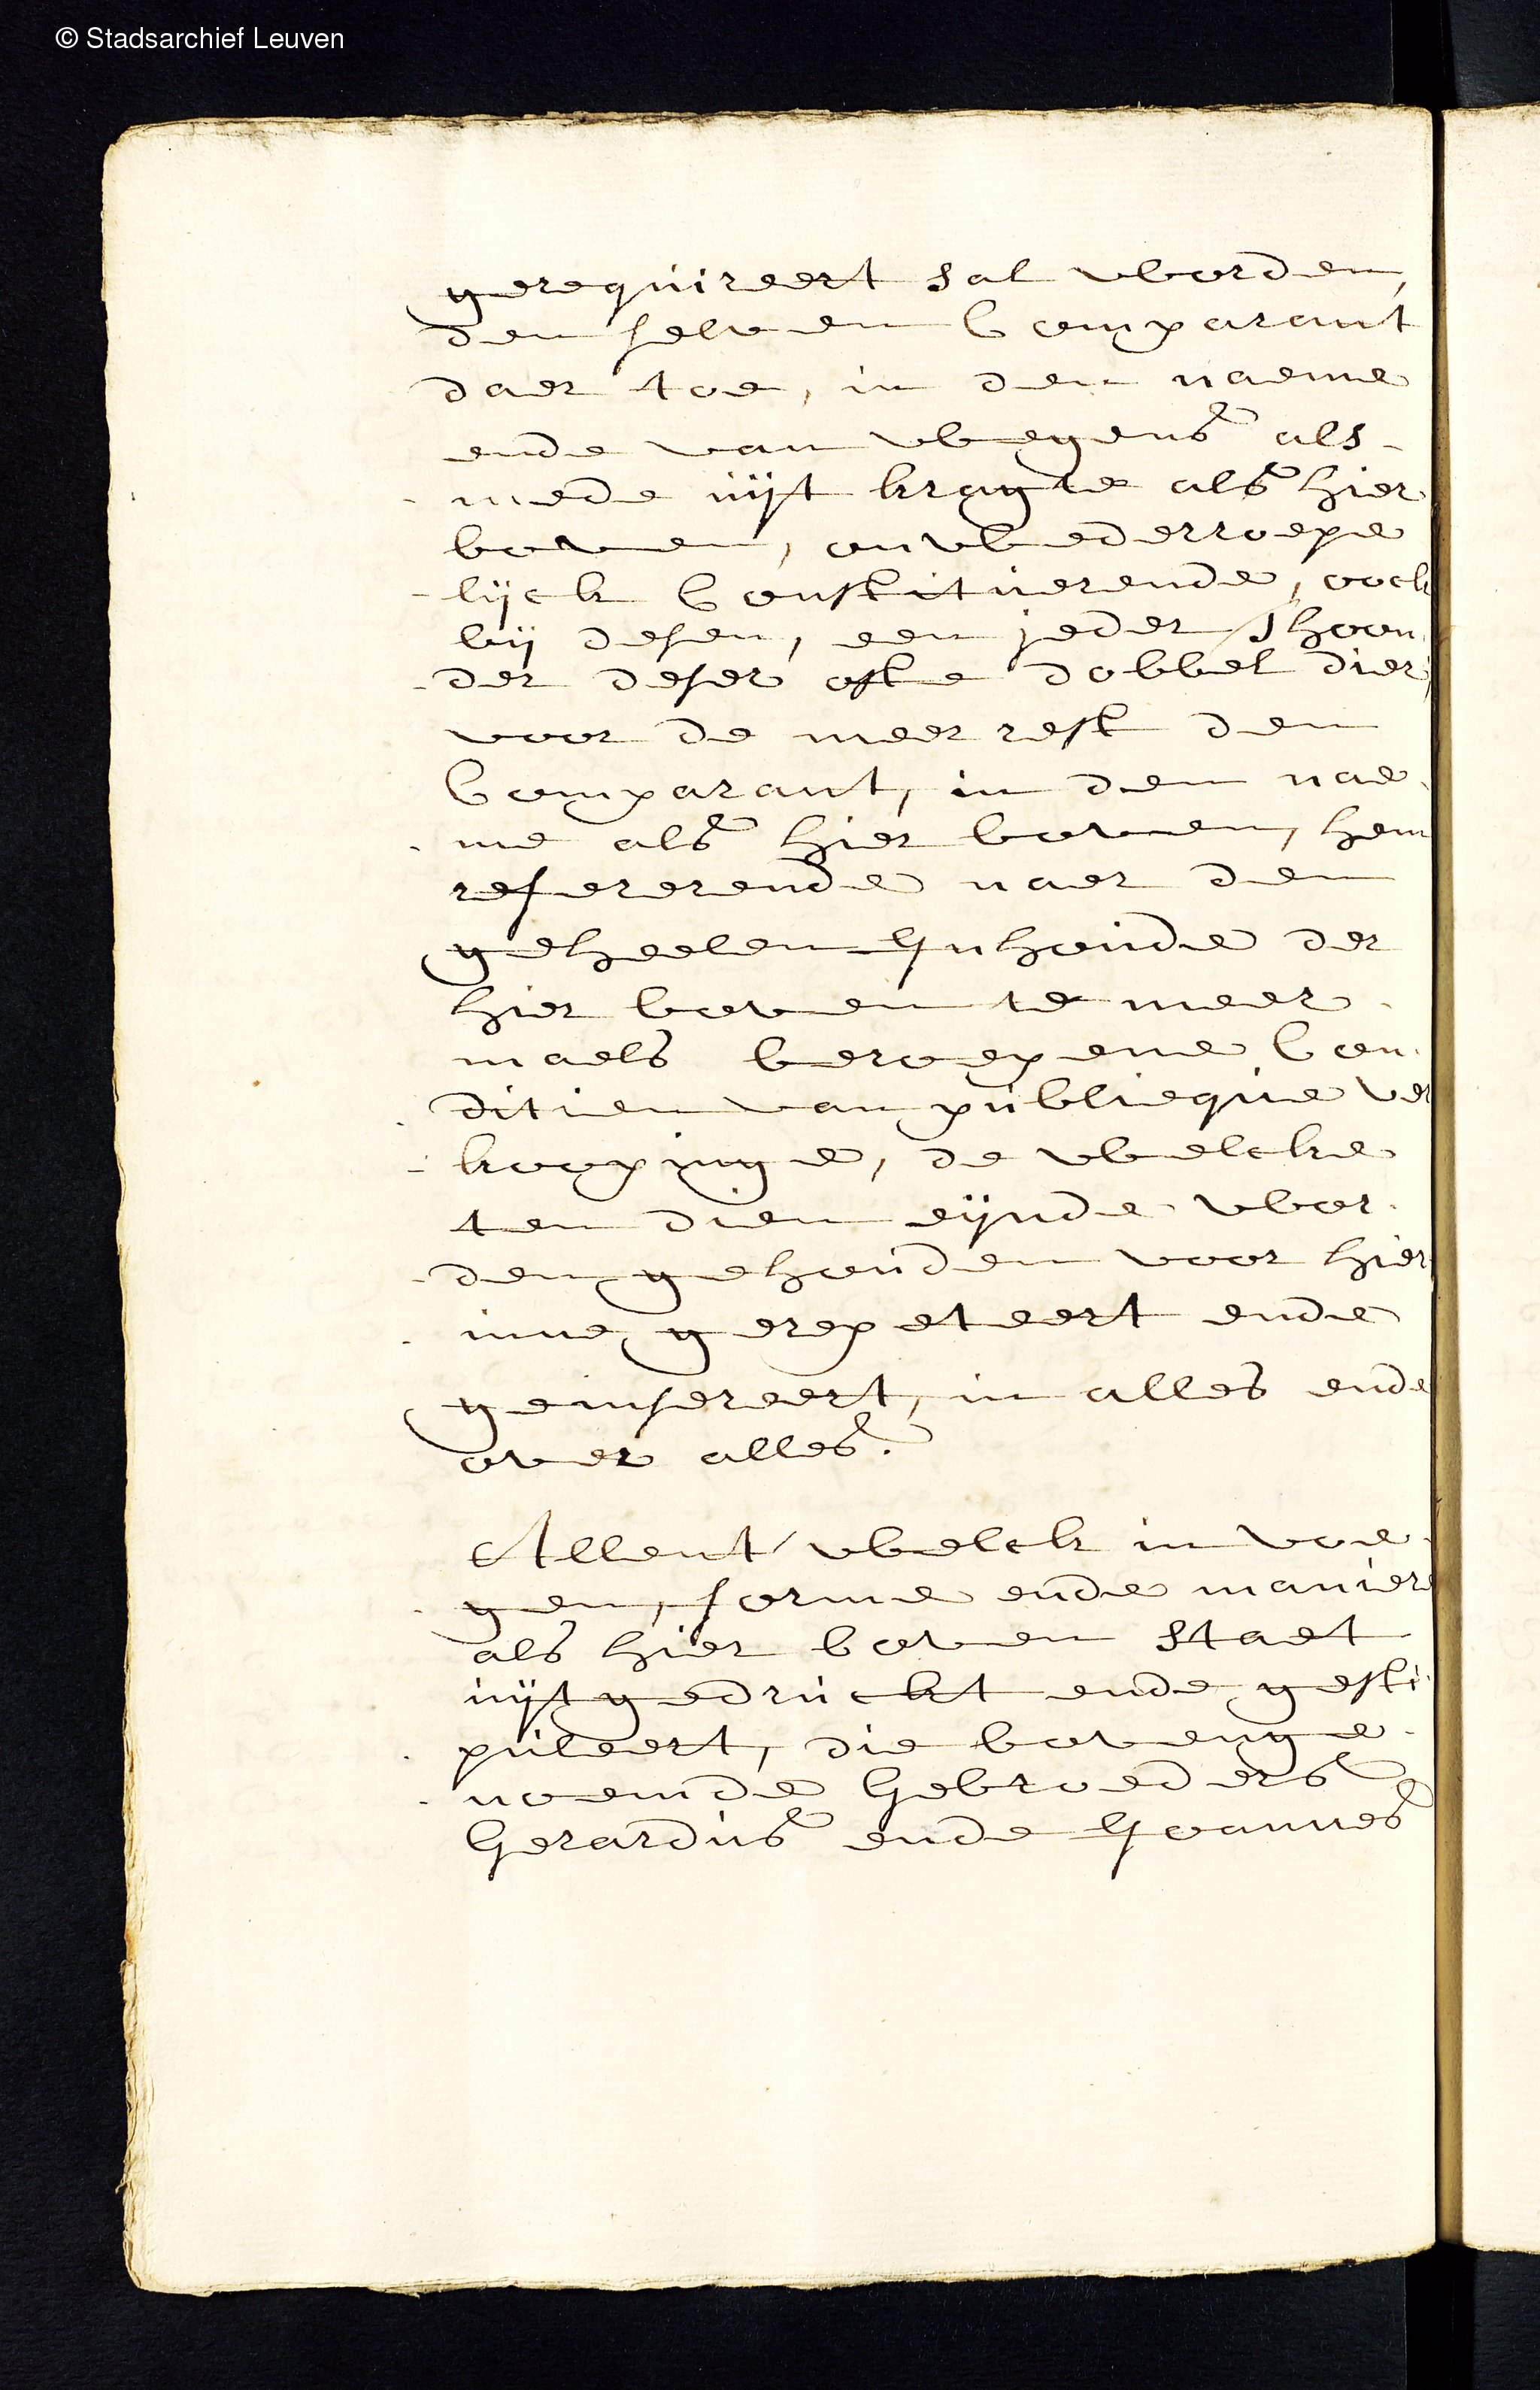 © Stadsarchief Leuven
gerequireert sal worden,
den selven Comparant
daer toe, in den naeme
ende van wegens als-
-mede uijt kragte als hier
boven, onwederroepe
-lijck Constituerende, oock
bij desen, een jeder Thoon
-der deser ofte dobbel dier,
voor de meerrest den
Comparant, in den nae-
-me als hier boven, hem
refererende naer den
geheelen Inhoude der
hier boven te meer-
maels beroepene Con-
-ditien van publieque ver
-koopinge, de welcke
ten dien eijnde wor-
-den gehouden voor hier
-inne gerepeteert ende
geinsereert, in alles ende
over alles.
Allent welck in voe-
-gen, forme ende maniere
als hier boven staet
uijtgedruckt ende gesti
-puleert, die bovenge-
-noemde Gebroeders
Gerardus ende Joannes